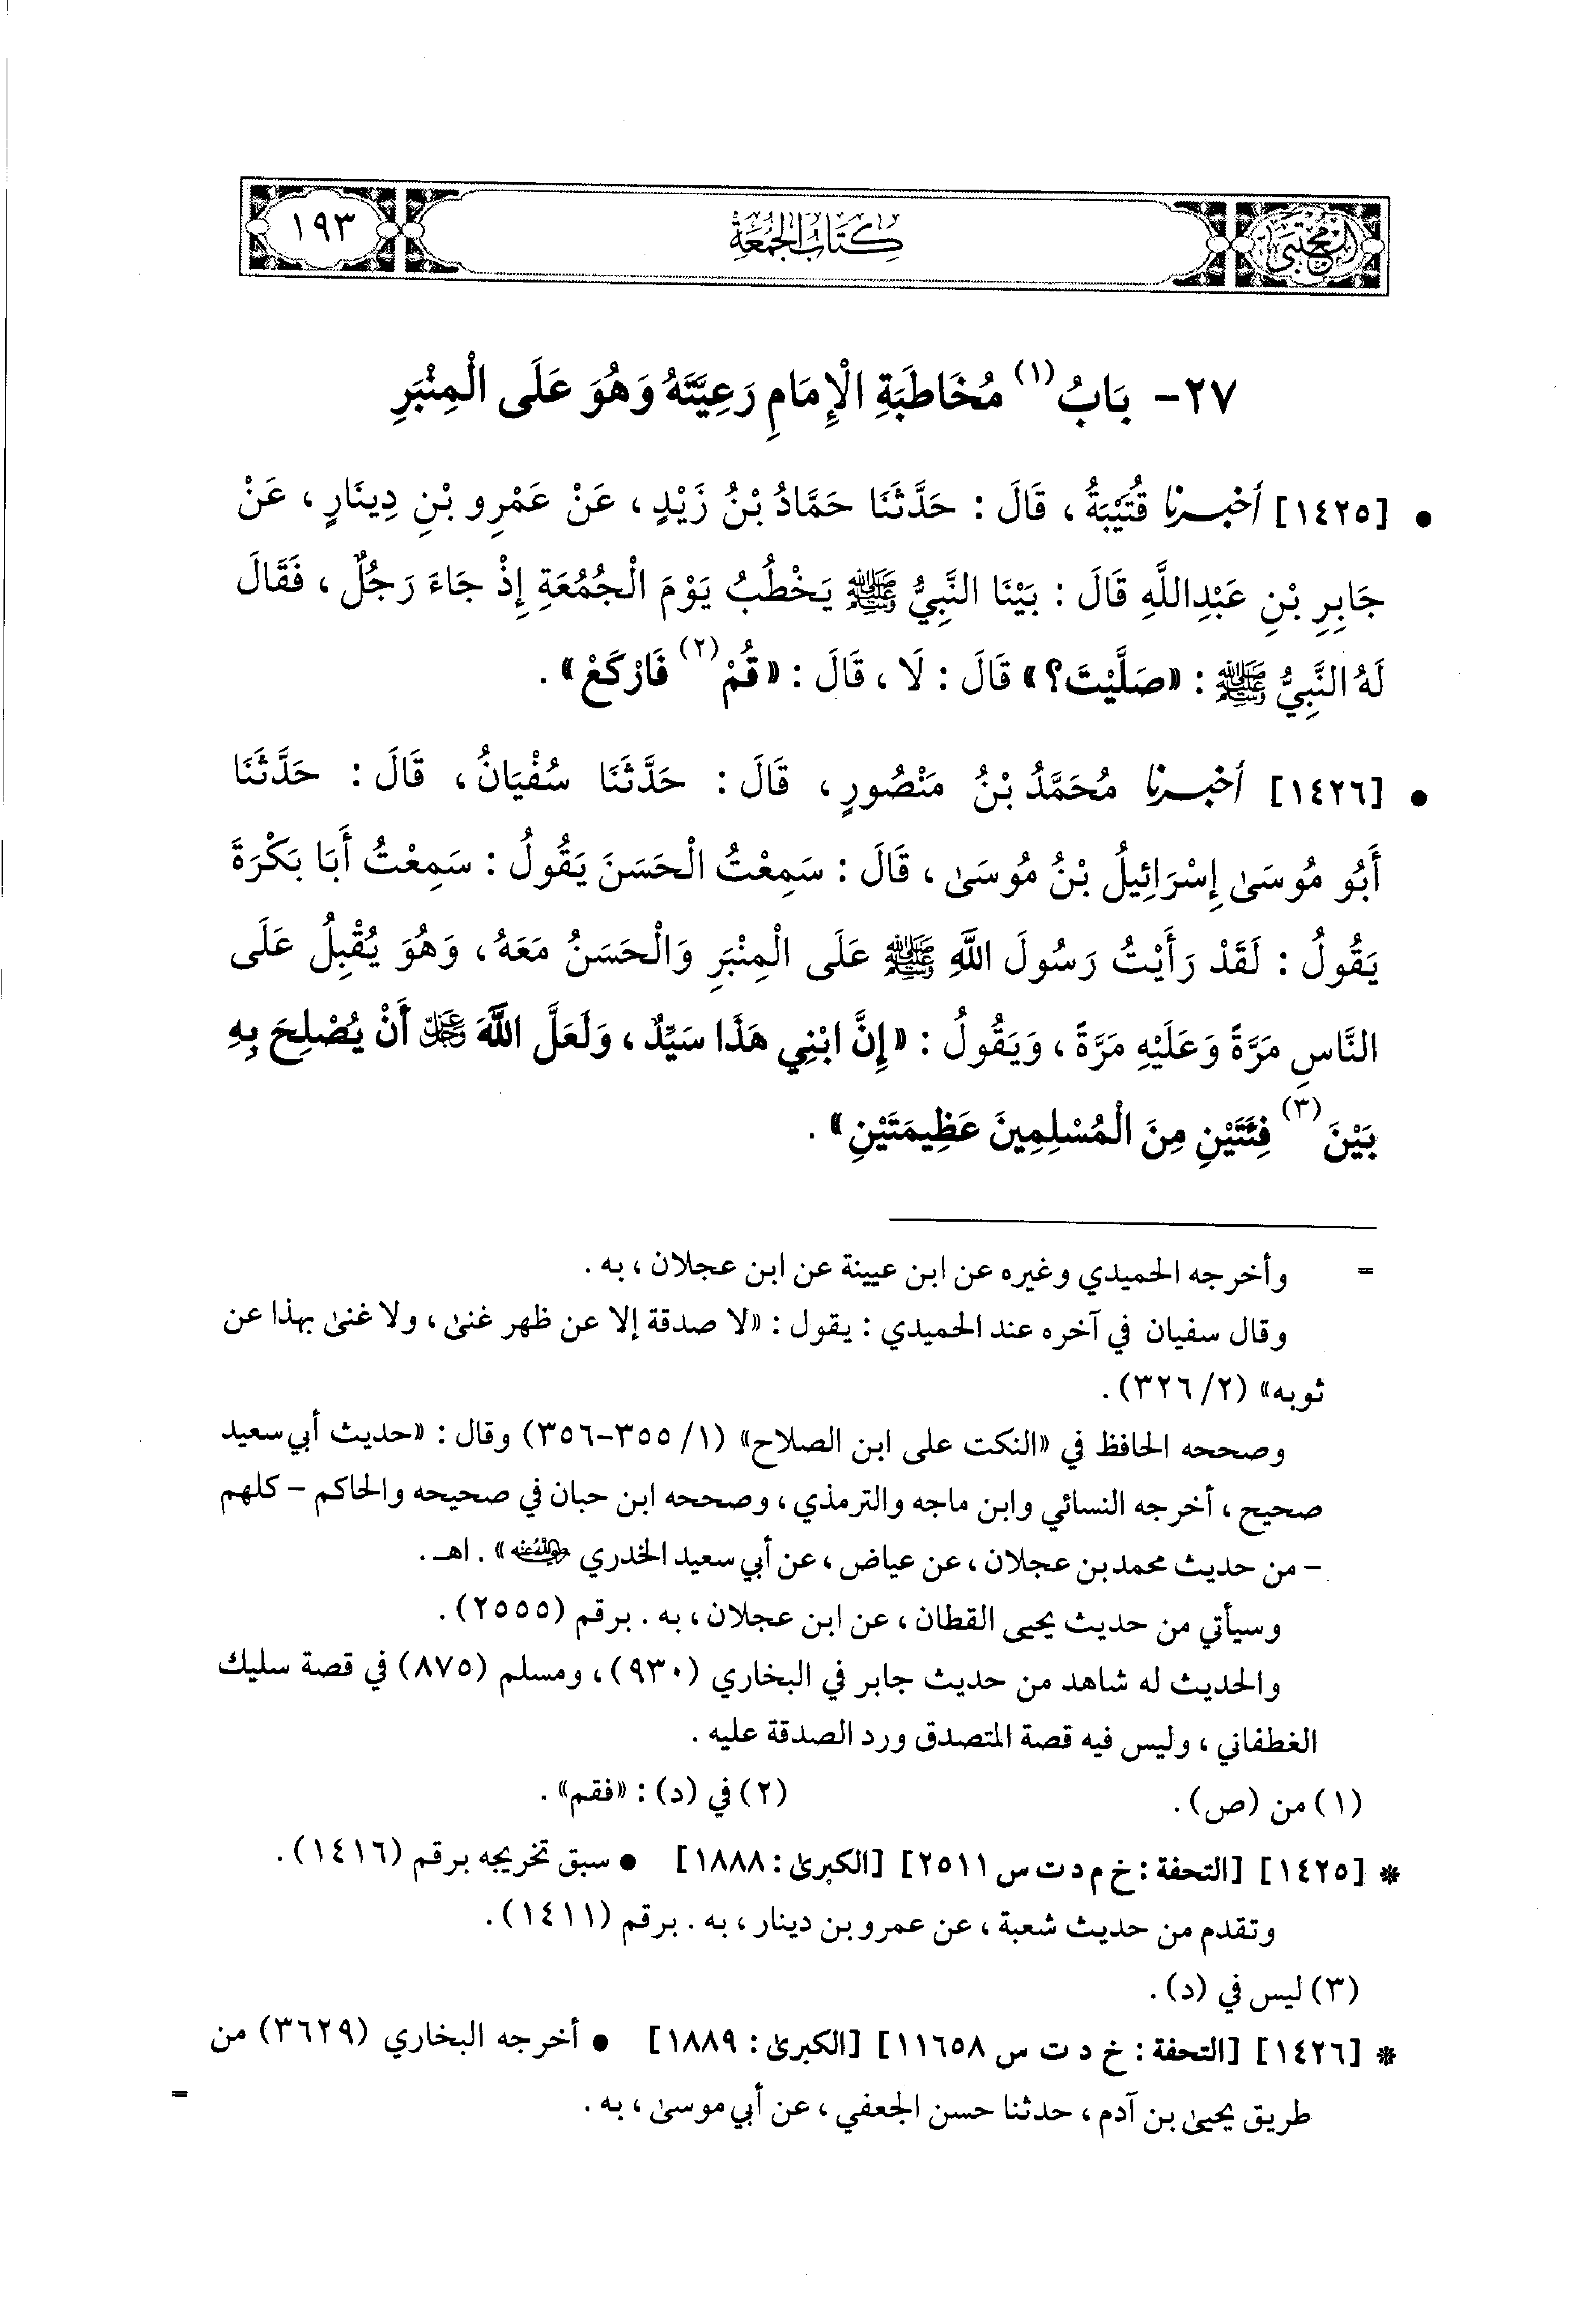 المجتبى
كِتَابُ الجُمُعَةِ
١٩٣
٢٧- بَابُ (١) مُخَاطَبَةِ الْإِمَامِ رَعِيَّتَهُ وَهُوَ عَلَى الْمِنْبَرِ
• [١٤٢٥] أخبرنا قُتَيْبَةُ، قَالَ: حَدَّثَنَا حَمَّادُ بْنُ زَيْدٍ، عَنْ عَمْرِو بْنِ دِينَارٍ، عَنْ
جَابِرِ بْنِ عَبْدِاللَّهِ قَالَ: بَيْنَا النَّبِيُّ ﷺ يَخْطُبُ يَوْمَ الْجُمُعَةِ إِذْ جَاءَ رَجُلٌ، فَقَالَ
لَهُ النَّبِيُّ ﷺ: «صَلَّيْتَ؟» قَالَ: لَا، قَالَ: «قُمْ (٢) فَارْكَعْ».
• [١٤٢٦] أخبرنا مُحَمَّدُ بْنُ مَنْصُورٍ، قَالَ: حَدَّثَنَا سُفْيَانُ، قَالَ: حَدَّثَنَا
أَبُو مُوسَىٰ إِسْرَائِيلُ بْنُ مُوسَىٰ، قَالَ: سَمِعْتُ الْحَسَنَ يَقُولُ: سَمِعْتُ أَبَا بَكْرَةَ
يَقُولُ: لَقَدْ رَأَيْتُ رَسُولَ اللَّهِ ﷺ عَلَى الْمِنْبَرِ وَالْحَسَنُ مَعَهُ، وَهُوَ يُقْبِلُ عَلَى
النَّاسِ مَرَّةً وَعَلَيْهِ مَرَّةً، وَيَقُولُ: «إِنَّ ابْنِي هَذَا سَيِّدٌ، وَلَعَلَّ اللَّهَ عَزَّ وَجَلَّ أَنْ يُصْلِحَ بِهِ
بَيْنَ (٣) فِئَتَيْنِ مِنَ الْمُسْلِمِينَ عَظِيمَتَيْنِ».
= وأخرجه الحميدي وغيره عن ابن عيينة عن ابن عجلان، به.
وقال سفيان في آخره عند الحميدي: يقول: «لا صدقة إلا عن ظهر غنىٰ، ولا غنىٰ بهذا عن
ثوبه» (٢/ ٣٢٦).
وصححه الحافظ في «النكت على ابن الصلاح» (١/ ٣٥٥-٣٥٦) وقال: «حديث أبي سعيد
صحيح، أخرجه النسائي وابن ماجه والترمذي، وصححه ابن حبان في صحيحه والحاكم - كلهم
- من حديث محمد بن عجلان، عن عياض، عن أبي سعيد الخدري رضي الله عنه». اهـ.
وسيأتي من حديث يحيى القطان، عن ابن عجلان، به. برقم (٢٥٥٥).
والحديث له شاهد من حديث جابر في البخاري (٩٣٠)، ومسلم (٨٧٥) في قصة سليك
الغطفاني، وليس فيه قصة المتصدق ورد الصدقة عليه.
(١) من (ص). (٢) في (د): «فقم».
* [١٤٢٥] [التحفة: خ م د ت س ٢٥١١] [الكبرىٰ: ١٨٨٨] • سبق تخريجه برقم (١٤١٦).
وتقدم من حديث شعبة، عن عمرو بن دينار، به. برقم (١٤١١).
(٣) ليس في (د).
* [١٤٢٦] [التحفة: خ د ت س ١١٦٥٨] [الكبرىٰ: ١٨٨٩] • أخرجه البخاري (٣٦٢٩) من
طريق يحيىٰ بن آدم، حدثنا حسن الجعفي، عن أبي موسىٰ، به. =